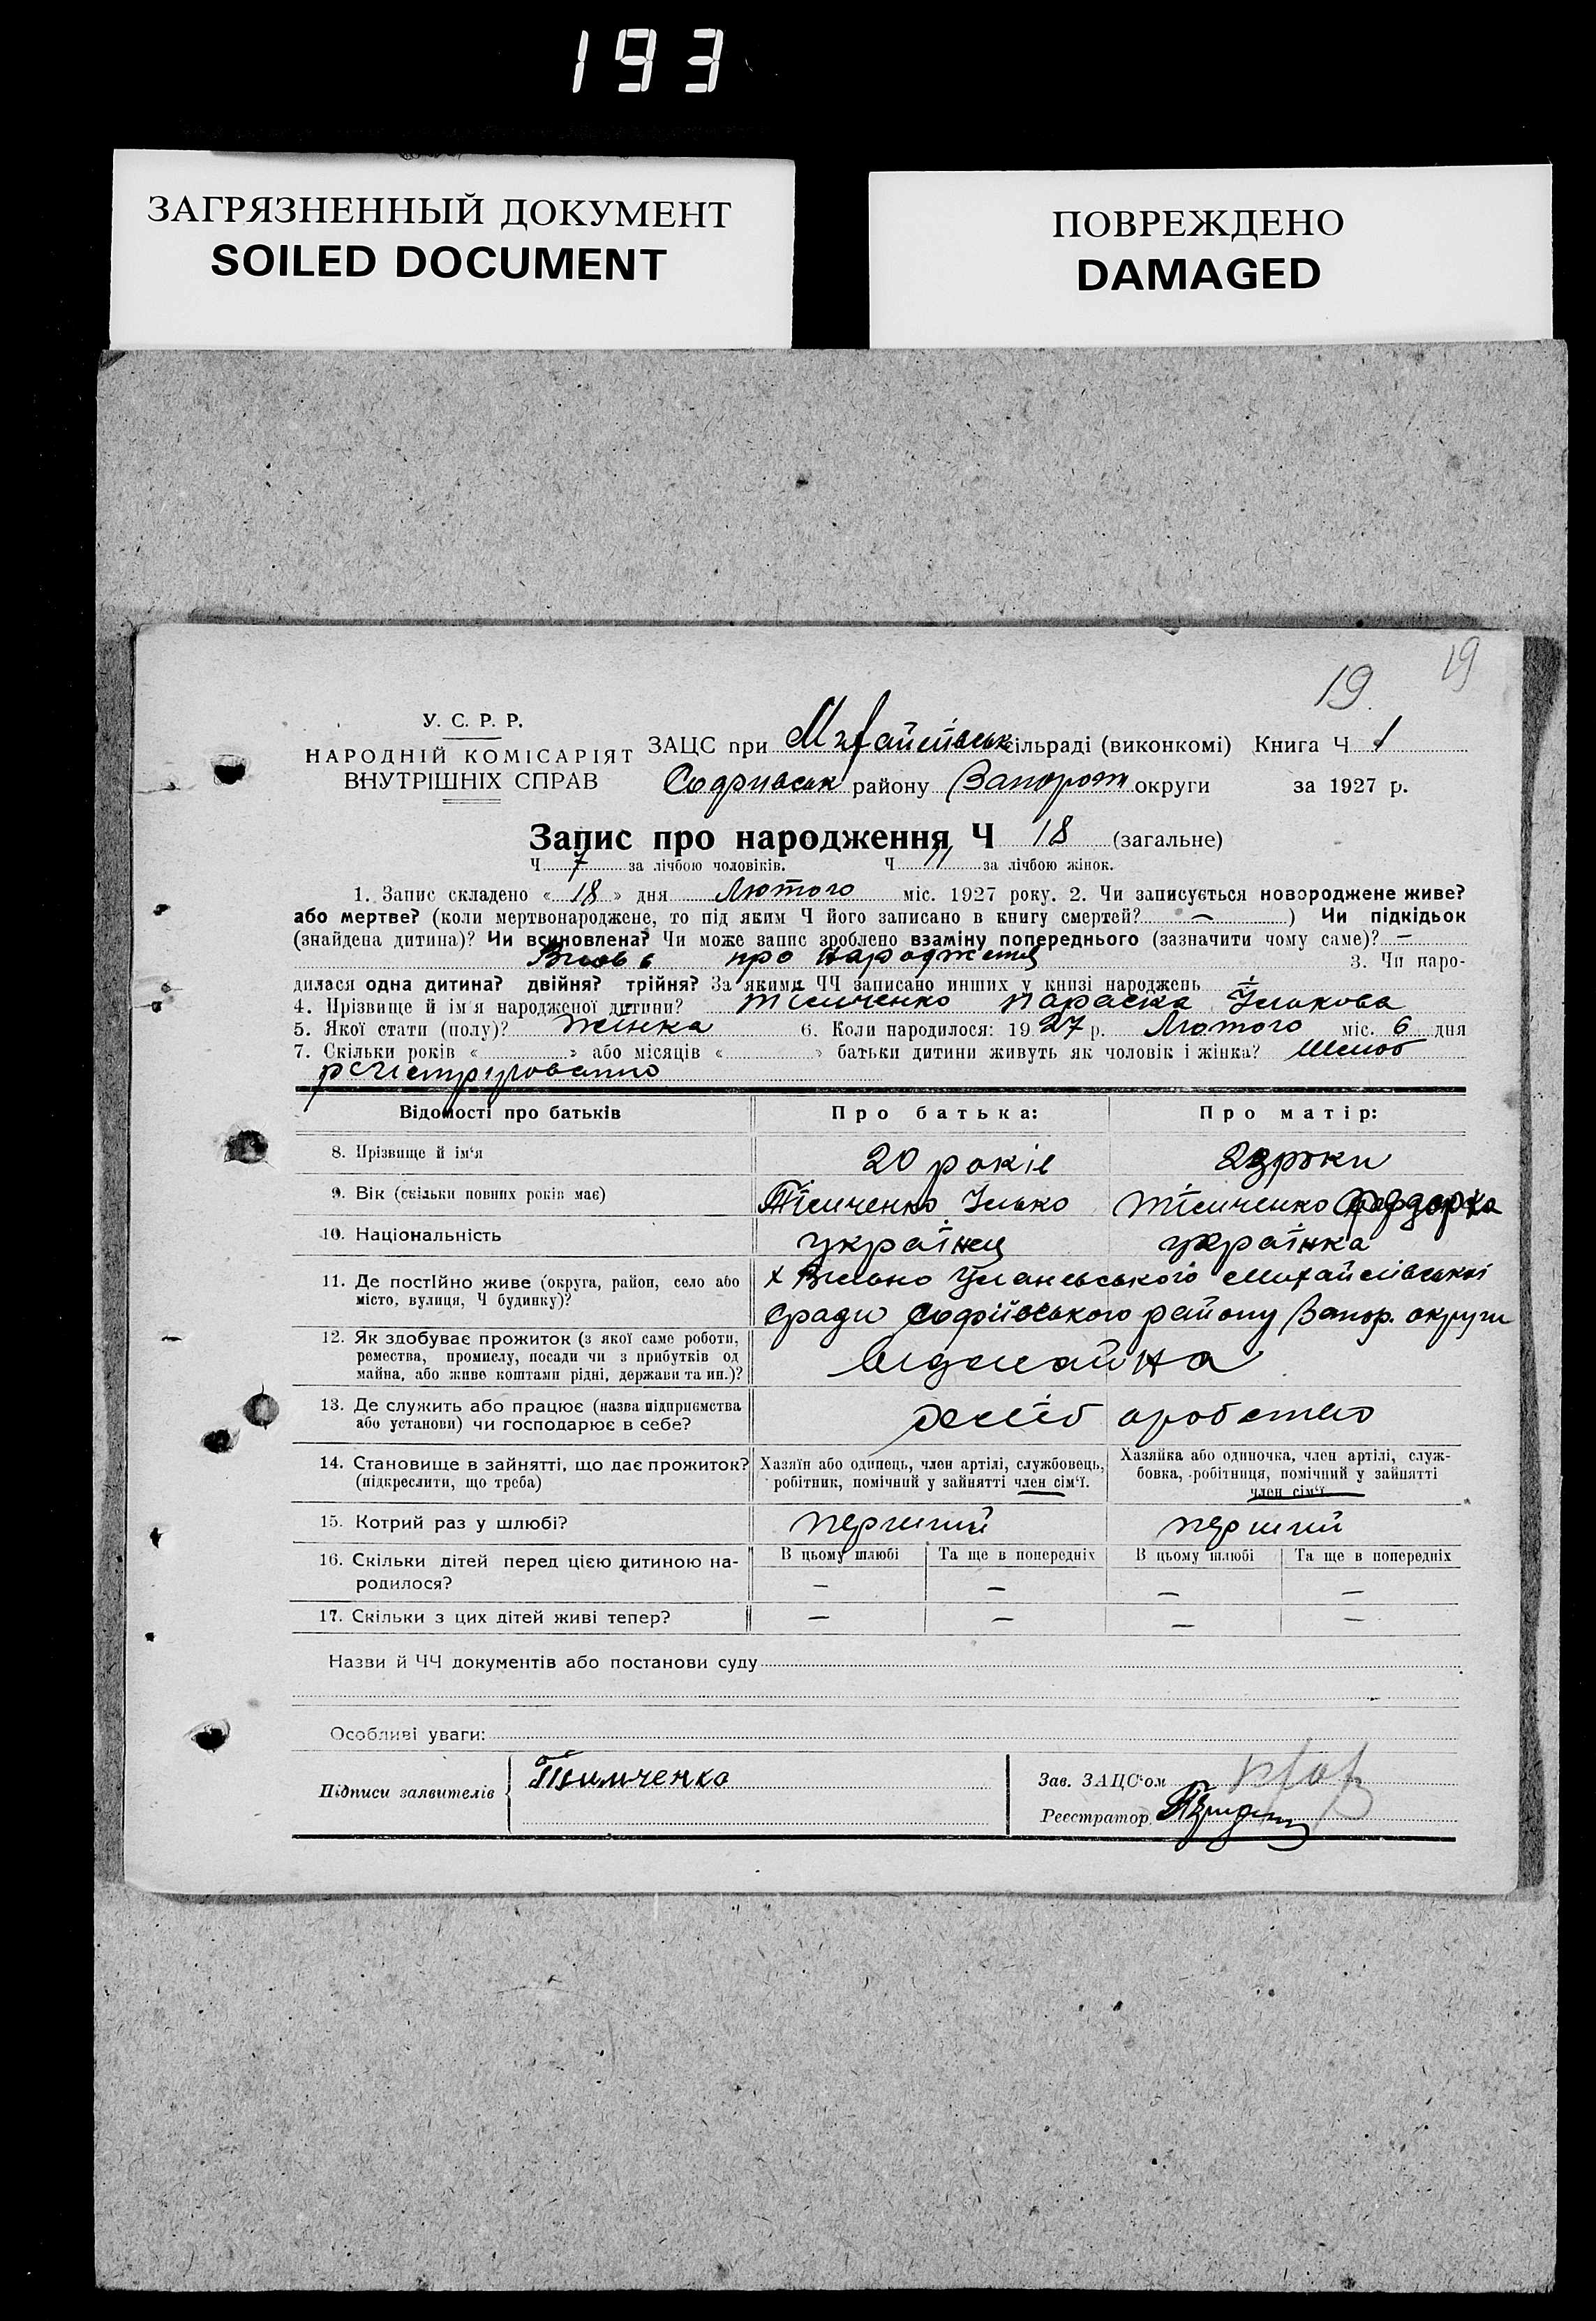 193
ЗАГРЯЗНЕННЫЙ ДОКУМЕНТ
SOILED DOCUMENT
ПОВРЕЖДЕНО
DAMAGED
19
19.
У. С. Р. Р.
НАРОДНІЙ КОМІСАРІЯТ
ВНУТРІШНІХ СПРАВ
ЗАЦС при Михайлівськ сільраді (виконкомі) Книга Ч 1
Софиївськ району Запорож округи за 1927 р.
Запис про народження Ч 18 (загальне)
Ч 7 за лічбою чоловіків. Ч 11 за лічбою жінок.
1. Запис складено « 18 » дня Лютого міс. 1927 року. 2. Чи записується новороджене живе?
або мертве? (коли мертвонароджене, то під яким Ч його записано в книгу смертей? — ) Чи підкідьок
(знайдена дитина)? Чи всиновлена? Чи може запис зроблено взаміну попереднього (зазначити чому саме)? —
про народження 3. Чи наро-
дилася одна дитина? двійня? трійня? За якими ЧЧ записано инших у книзі народжень —
4. Прізвище й ім'я народженої дитини? Тімченко Параска Ількова
5. Якої стати (полу)? Жінка 6. Коли народилося: 1927 р. Лютого міс. 6 дня
7. Скільки років « » або місяців « » батьки дитини живуть як чоловік і жінка? Шлюб
регистрировано
Відомості про батьків Про батька: Про матір:
8. Прізвище й ім'я 20 років 23 роки
9. Вік (скільки повних років має) Тімченко Ілько Тімченко
10. Національність українец українка
11. Де постійно живе (округа, район, село або
місто, вулиця, Ч будинку)?
х Вільно Уланевського Михайлівської
сради Софіївського району Запор. округи
12. Як здобуває прожиток (з якої саме роботи,
ремества, промислу, посади чи з прибутків од
майна, або живе коштами рідні, держави та ин.)?
від майна
13. Де служить або працює (назва підприємства
або установи) чи господарює в себе?
хліб оробство
14. Становище в зайнятті, що дає прожиток?
(підкреслити, що треба)
Хазяїн або одинець, член артілі, службовець,
робітник, помічний у зайнятті член сім'ї.
Хазяйка або одиночка, член артілі, служ-
бовка, робітниця, помічний у зайнятті
член сім'ї.
15. Котрий раз у шлюбі? перший перший
16. Скільки дітей перед цією дитиною на-
родилося?
В цьому шлюбі Та ще в попередніх В цьому шлюбі Та ще в попередніх
— — — —
17. Скільки з цих дітей живі тепер? — — — —
Назви й ЧЧ документів або постанови суду
Особливі уваги:
Підписи заявителів Тимченко
Зав. ЗАЦС'ом
Реєстратор